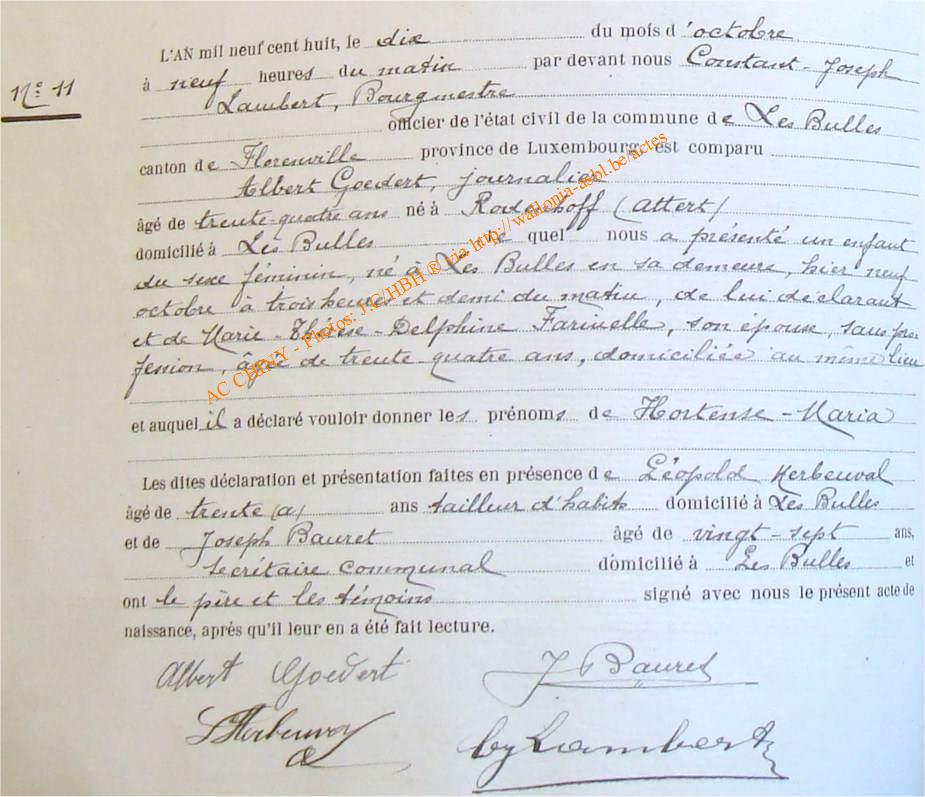 L'AN mil neuf cent huit, le dix du mois d'octobre
N° 11
à neuf heures du matin par devant nous Constant-Joseph
Lambert, Bourgmestre
officier de l'état civil de la commune de Les Bulles
canton de Florenville province de Luxembourg est comparu
Albert Goedert, journalier
âgé de trente-quatre ans né à (Attert)
domicilié à Les Bulles quel nous a présenté un enfant
du sexe féminin, né à Les Bulles en sa demeure, hier neuf
octobre à trois heures et demi du matin, de lui déclarant
et de Marie-Thérèse-Delphine Farinelle, son épouse, sans pro-
fession, âgée de trente quatre ans, domiciliée au même lieu
et auquel il a déclaré vouloir donner les prénoms de Hortense-Maria
Les dites déclaration et présentation faites en présence de Léopold Herbeuval
âgé de trente (a) ans tailleur d'habits domicilié à Les Bulles
et de Joseph Bauret âgé de vingt-sept ans,
secrétaire communal domicilié à Les Bulles et
ont le père et les témoins signé avec nous le présent acte de
naissance, après qu'il leur en a été fait lecture.
Albert Goedert J Bauret
LHerbeuval CJLambert
AC CHINY - Photos: J.C/HBH ® via http://wallonia-asbl.be/actes